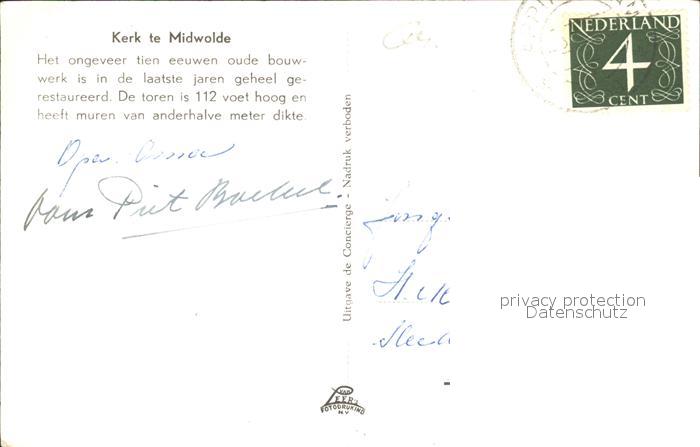 Kerk te Midwolde
Het ongeveer tien eeuwen oude bouw-
werk is in de laatste jaren geheel ge-
restaureerd. De toren is 112 voet hoog en
heeft muren van anderhalve meter dikte.
Piet
Uitgave de Concierge - Nadruk verboden
VAN
LEER'S
FOTODRUKIND
N.V.
NEDERLAND
4
CENT
Jong
privacy protection
Datenschutz